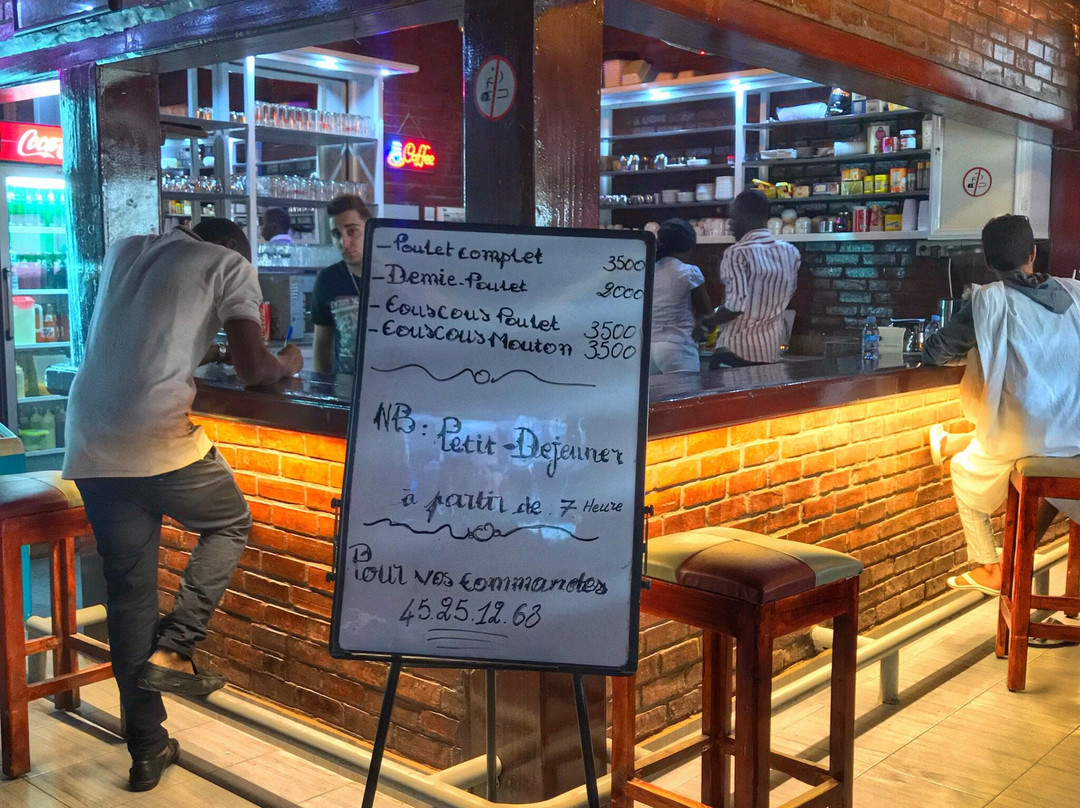 Coca
Coffee
- Poulet complet 3500
- Demie-Poulet 2000
- Couscous Poulet 3500
- Couscous Mouton 3500
NB: Petit-Dejeuner
à partir de 7 Heure
Pour vos commandes
45.25.12.63